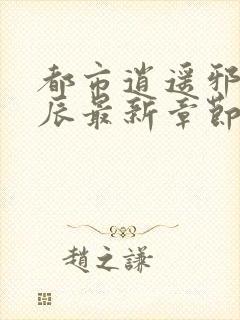 都市逍遥邪
辰最新章節
趙之謙